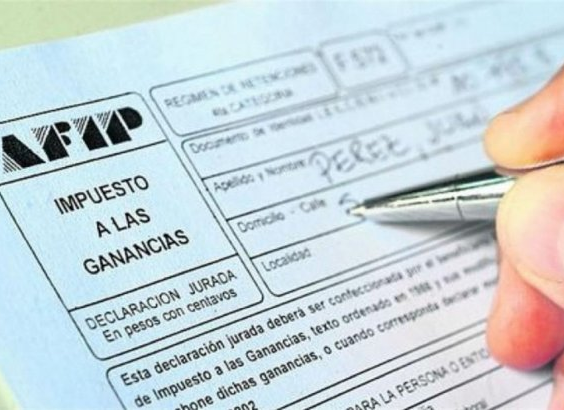 AFIP
IMPUESTO
A LAS
GANANCIAS
DECLARACION JURADA
En pesos con centavos
REGIMEN DE RETENCIONES
4ta CATEGORIA
F. 572
Documento de Identidad
Apellido y Nombre PEREZ, JUAN
Domicilio - Calle S
Localidad
Esta declaración jurada deberá ser confeccionada por el beneficiario
de Impuesto a las Ganancias, texto ordenado en 1986 y sus
dichas ganancias, o cuando corresponda declarar
PARA LA PERSONA O